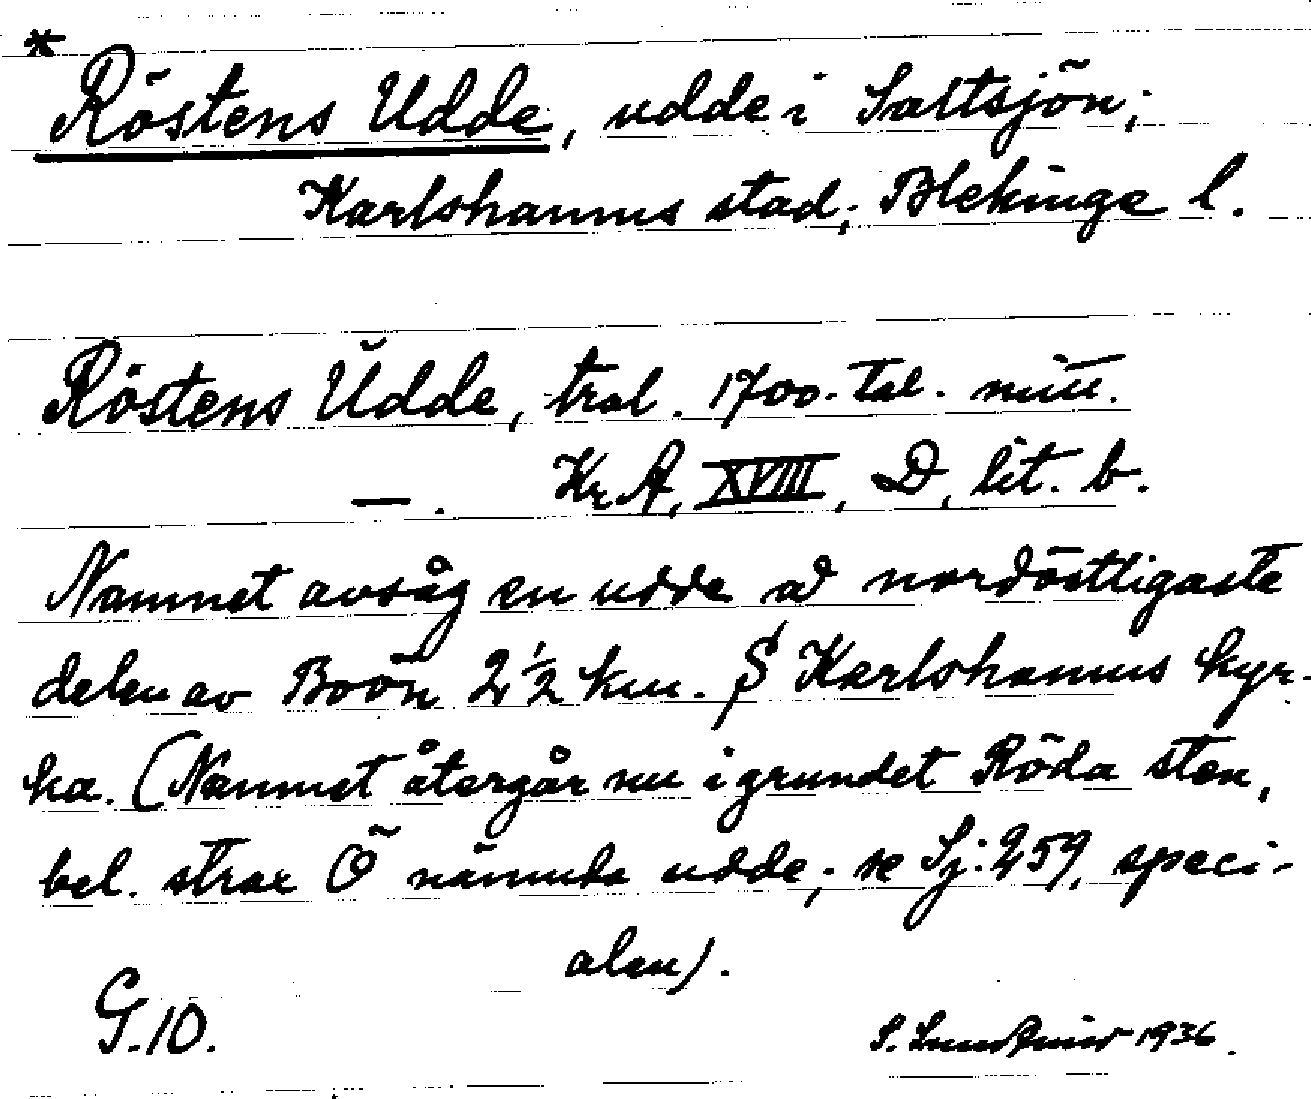 *
Röstens Udde, udde i Saltsjön;
Karlshamns stad; Blekinge l.
Röstens Udde, trol. 1700-tal. mitt.
—. KrA, XVIII, D, lit. b.
Namnet avsåg en udde å nordöstligaste
delen av Boön 2 1/2 km. S Karlshamns kyr-
ka. (Namnet återgår nu i grundet Röda sten,
bel. strax Ö nämnda udde; se Sj: 259, speci-
alen).
G.10.
S. 1936.